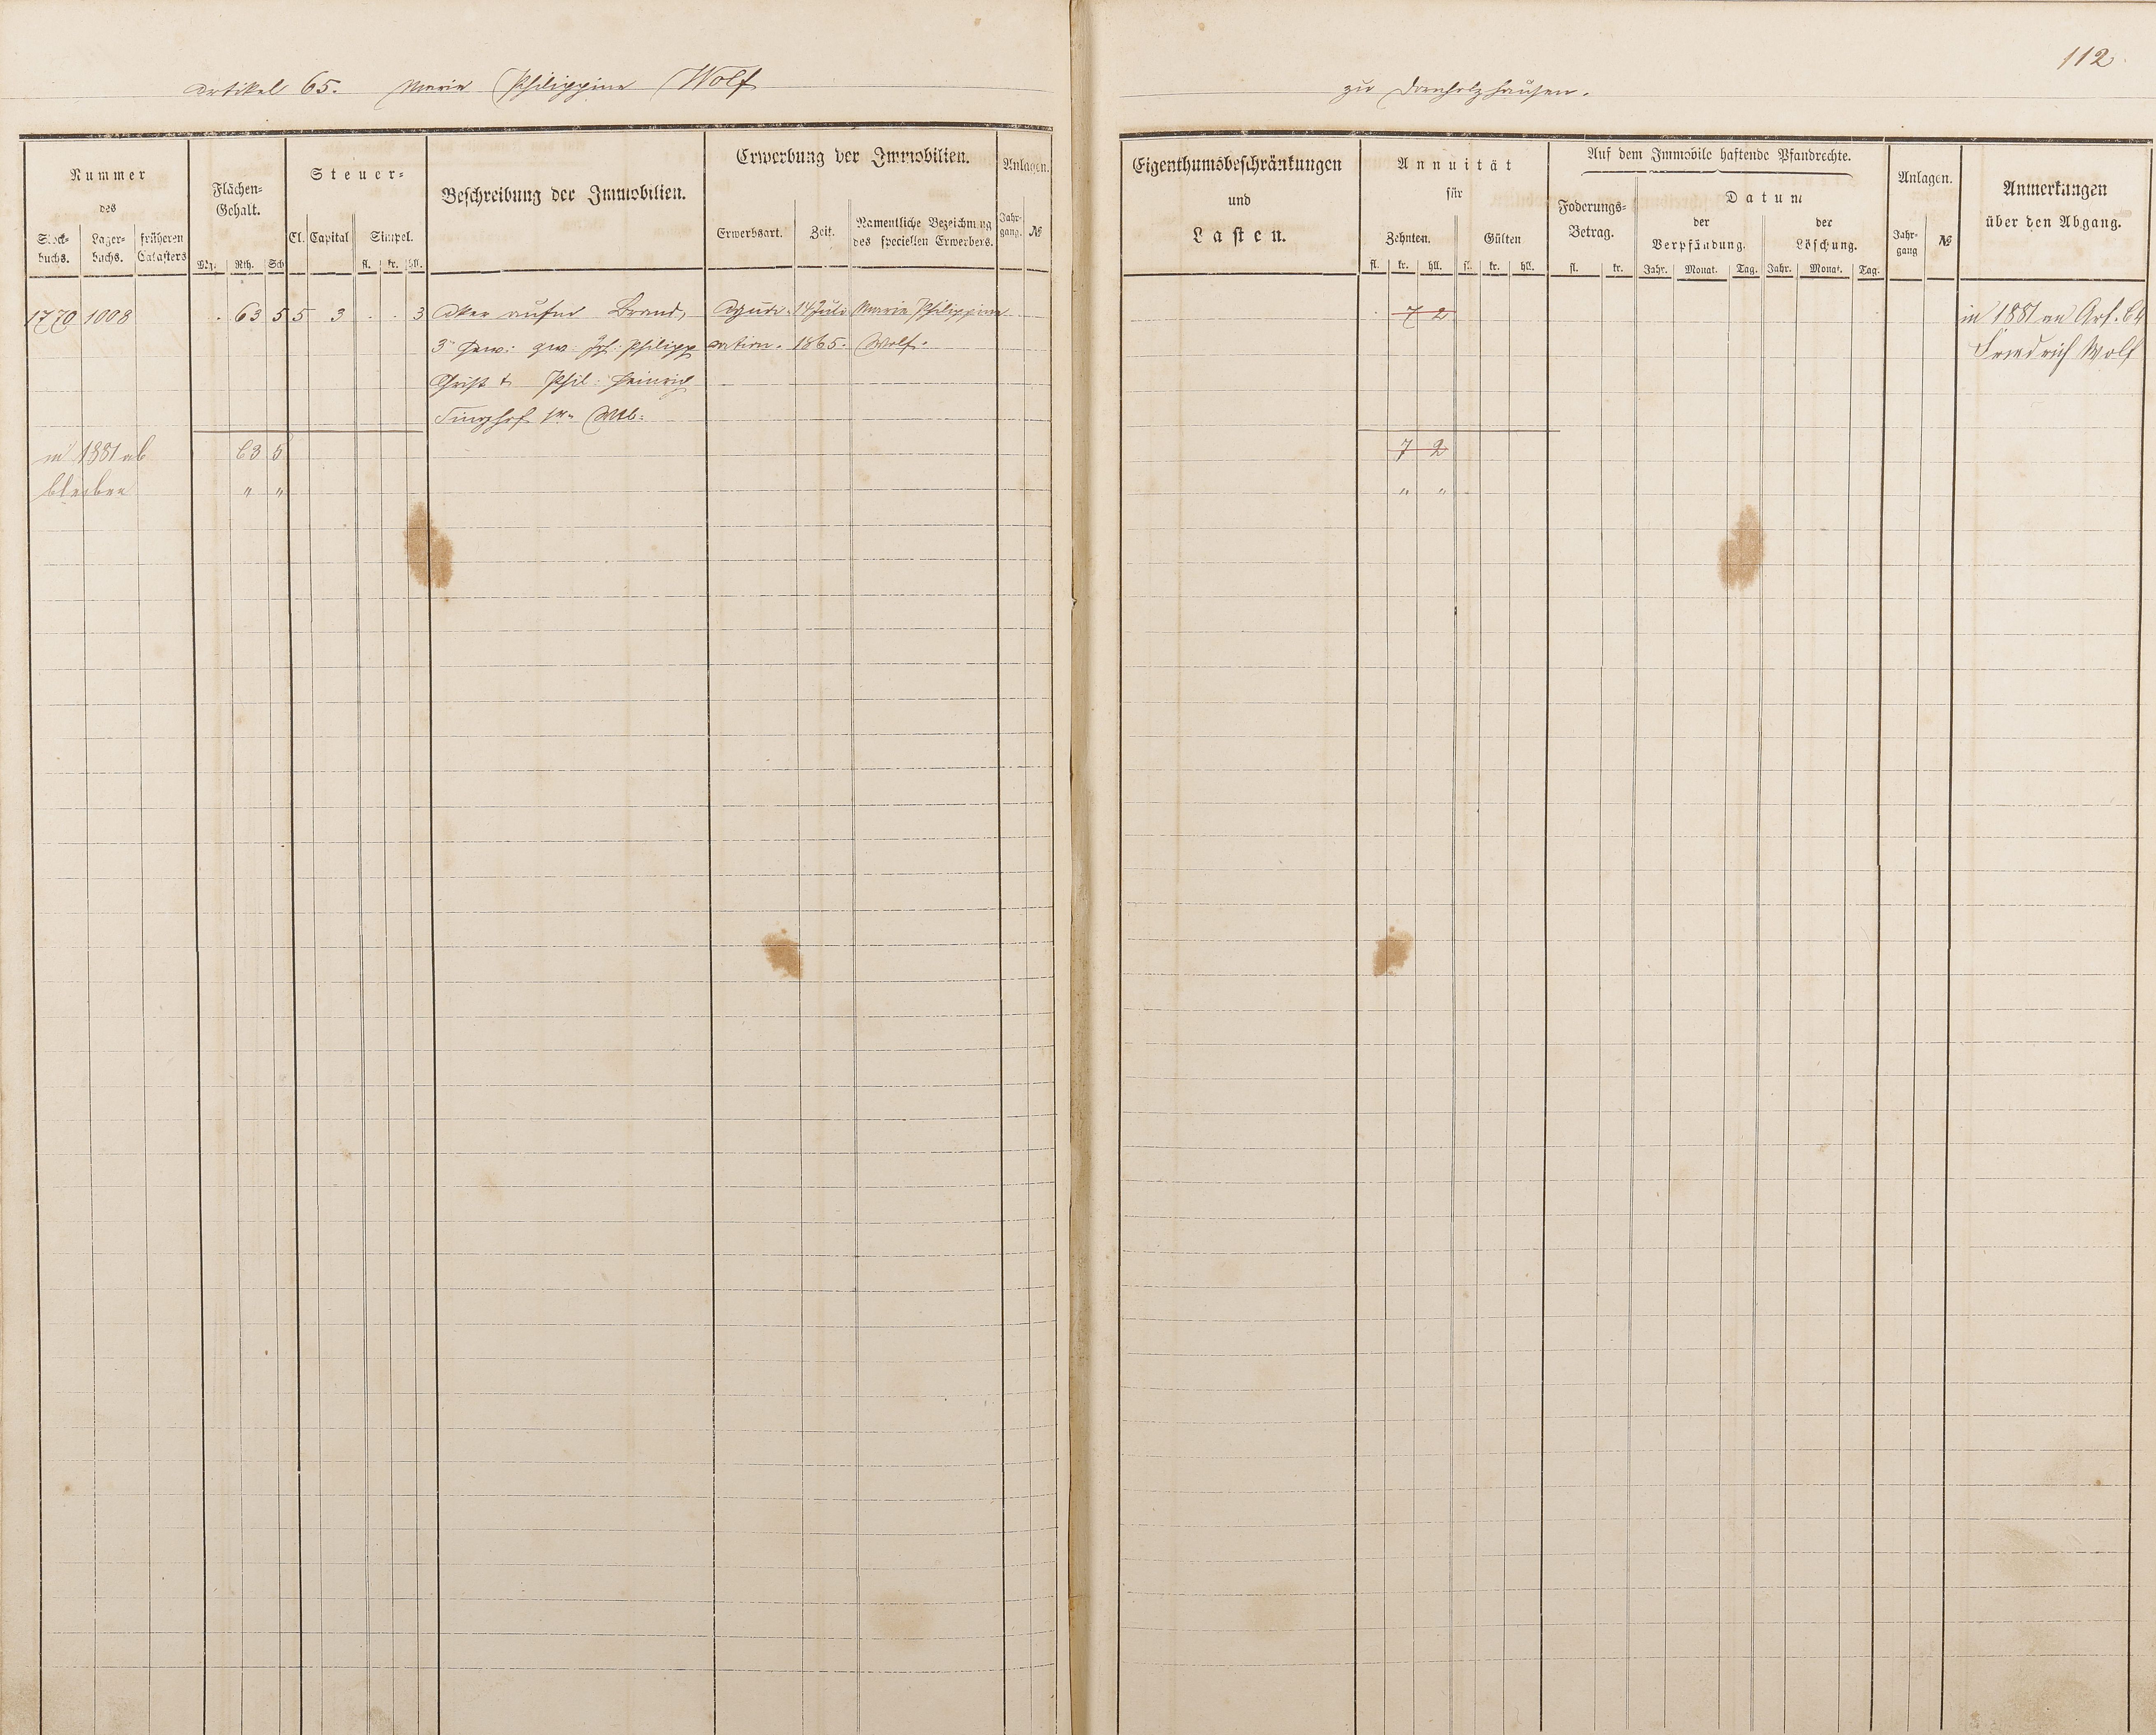 112
Artikel 65. Marie Philippine Wolf
zu Dornholzhausen.
Nummer
des
Stock-
buchs.
Lager-
buchs.
früheren
Catasters
Flächen-
Gehalt.
Mg. Rth. Sch
Steuer-
Cl. Capital Simpel.
fl. kr. hll.
Beschreibung der Immobilien.
Erwerbung der Immobilien.
Erwerbsart. Zeit. Namentliche Bezeichnung
des speciellen Erwerbers.
Anlagen.
Jahr-
gang. №
1770 1008 . 63 5 5 3 . . 3 Acker aufm Brand, Adjudi- 14 Juli Marie Philippine
3 Gew: zw: Joh: Philipp cation. 1865. Wolf.
Christ & Phil: Heinrich
in 1881 ab 63 5
bleiben " "
Eigenthumsbeschränkungen
und
Lasten.
Annuität
für
Zehnten. Gülten
fl. kr. hll. fl. kr. hll.
Auf dem Immobile haftende Pfandrechte.
Foderungs-
Betrag.
fl. kr.
Datum
der
Verpfändung.
Jahr. Monat. Tag.
der
Löschung.
Jahr. Monat. Tag.
Anlagen.
Jahr-
gang №
Anmerkungen
über den Abgang.
. 7 2
in 1881 an Art. 64
Friedrich Wolf
7 2
" "